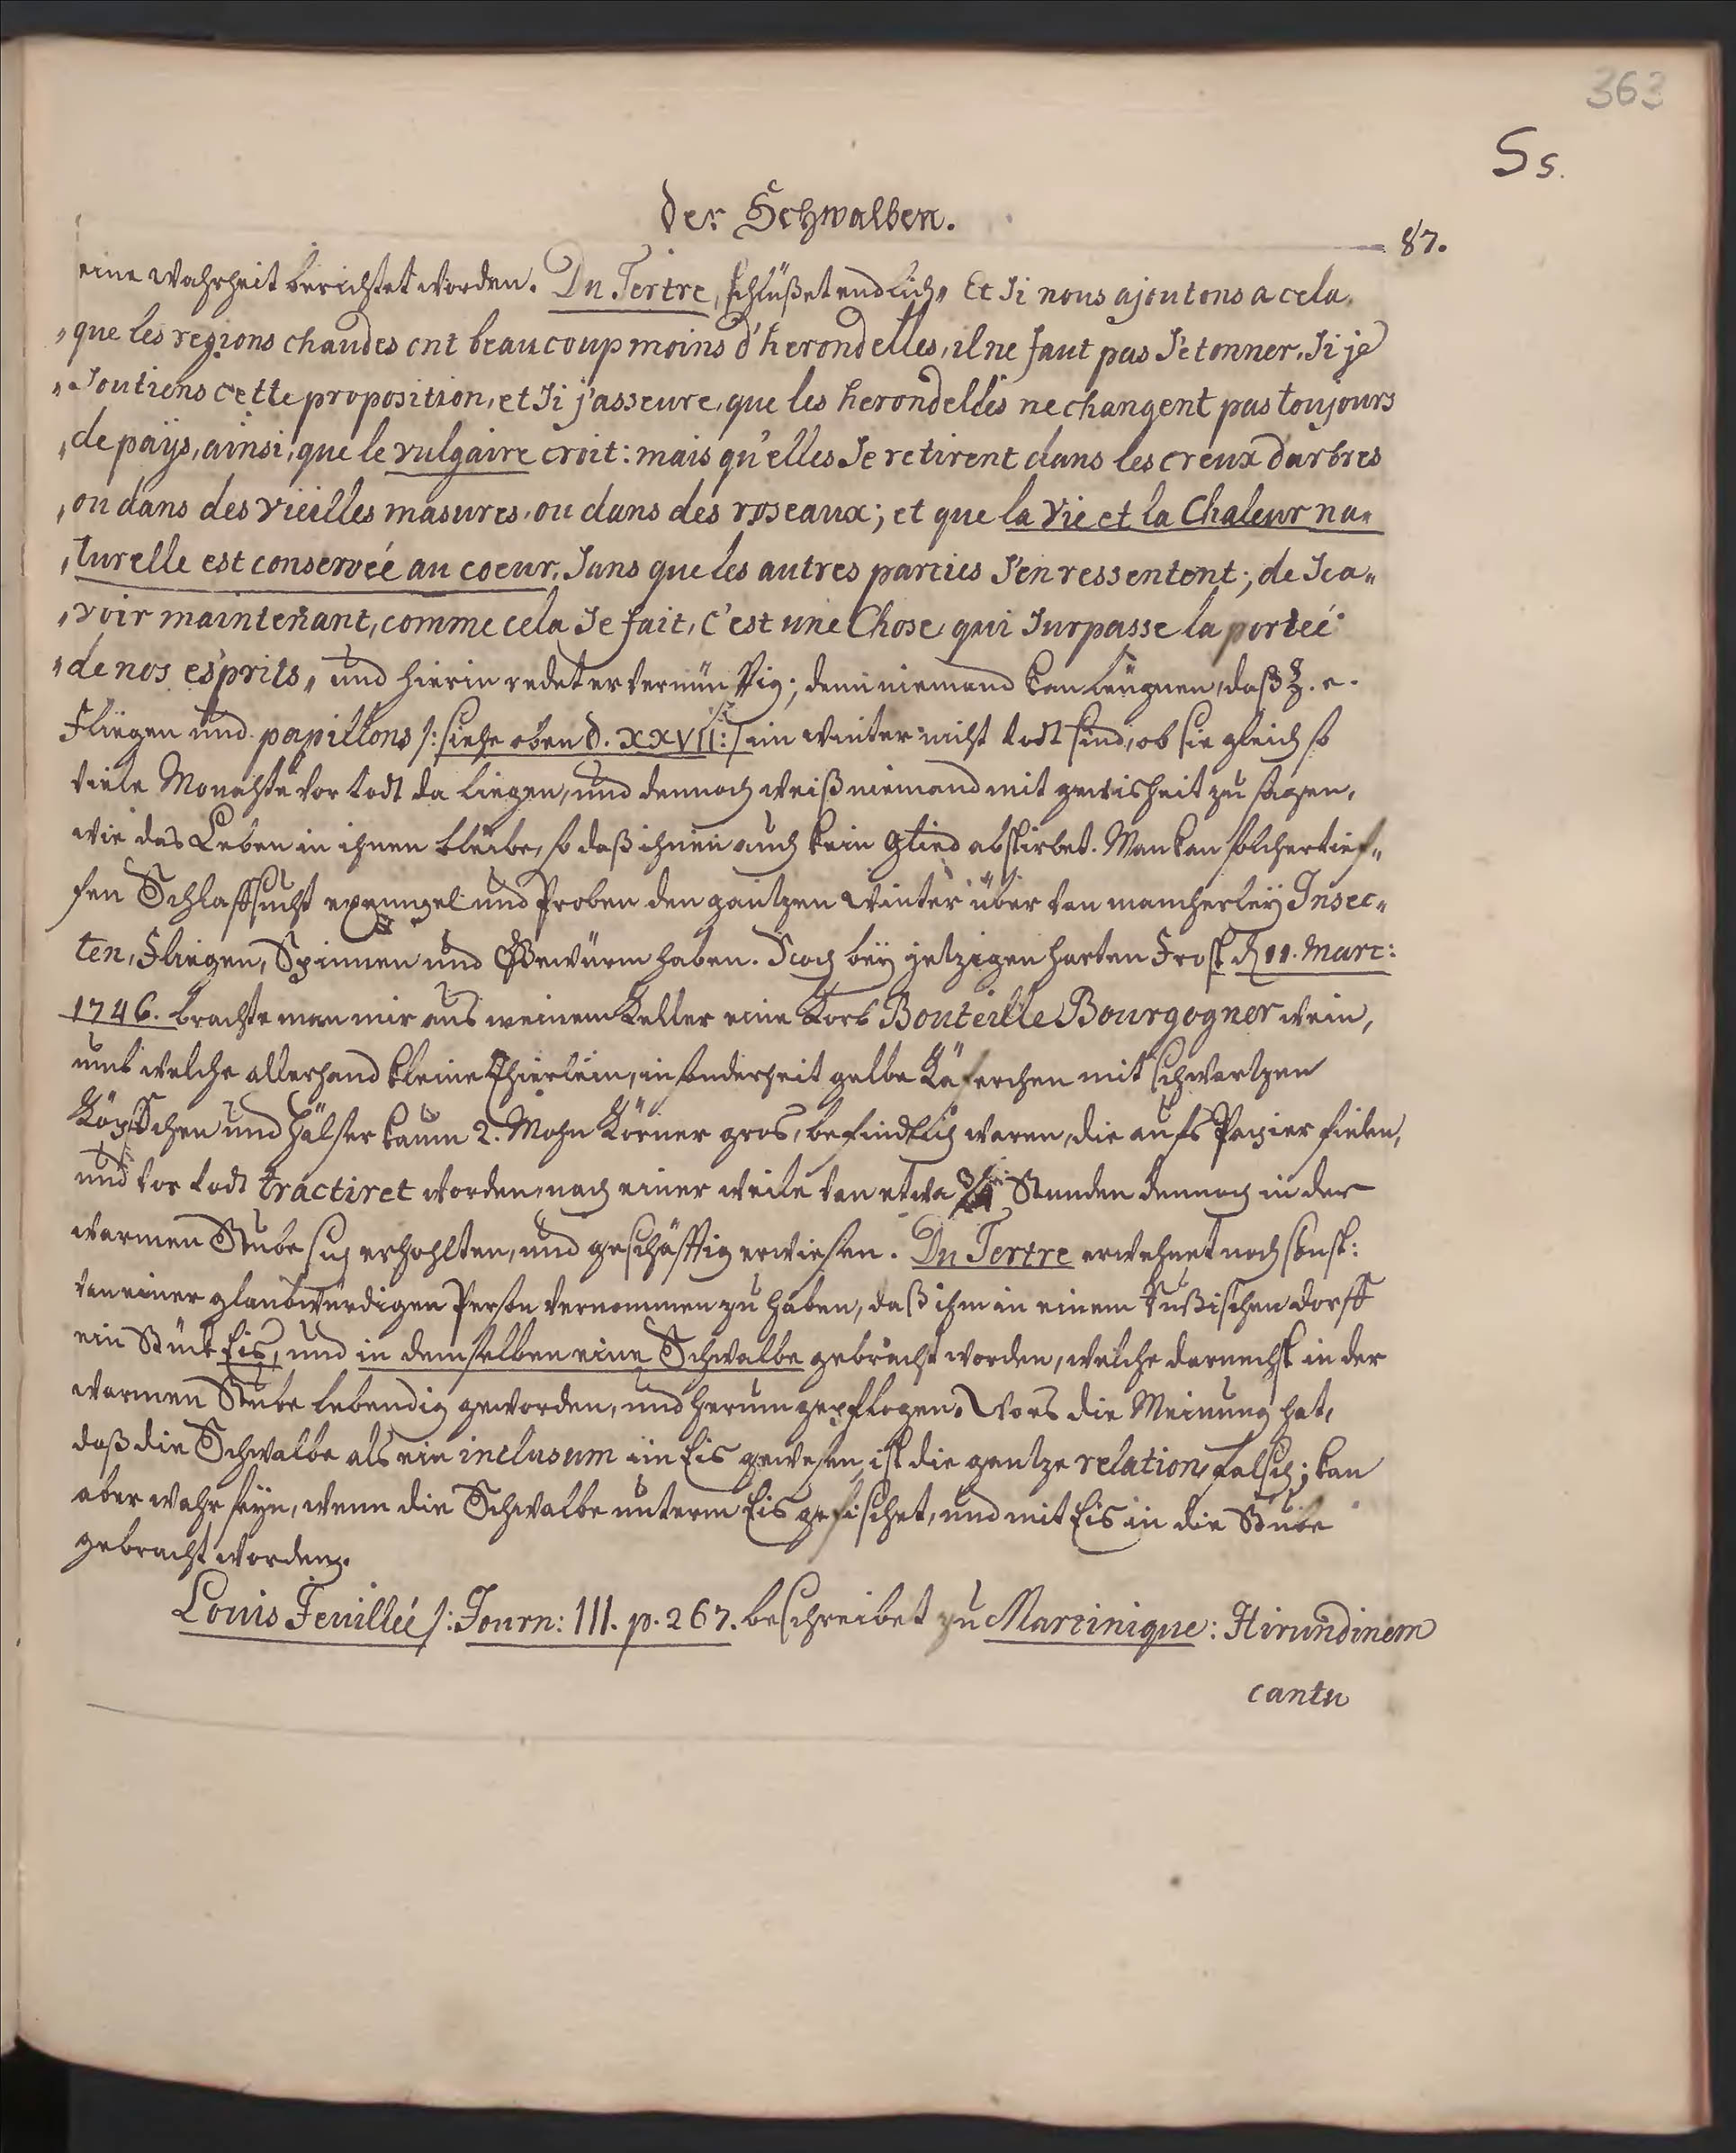 363
Ss.
der Schwalben.
87.
eine Wahrheit berichtet worden. Du Tertre, schlüßet endlich „ Et Si nous ajoutons a cela,
„que les regions chaudes ont beaucoup moins d'herondelles, il ne faut pas S'etonner, Si je
„Soutiens cette proposition, et Si j'asseure, que les herondelles ne changent pas toujours
„de païjs, ainsi, que le vulgaire croit: mais qu'elles Se retirent dans les creux darbres
„ou dans des vieilles masures, ou dans des roseaux; et que la Vie et la Chaleur na„
„turelle est conserveé au coeur, Sans que les autres parties S'en ressentent; de Sca„
„voir maintenant, comme cela Se fait, c'est une Chose, qui Surpasse la porteé
„de nos esprits „ und hierin redet er vernünfftig; denn niemand kan leugnen, daß z. e.
Fliegen und papillons /: siehe oben §. XXVII :/ im Winter nicht todt sind, ob sie gleich so
viele Monahte vor todt da liegen, und dennoch weiß niemand mit gewisheit zu sagen,
wie das Leben in ihnen bleibe, so daß ihnen auch kein Glied abstirbet. Man kan solcher tief„
fen Schlaffsucht exempel und Proben den gantzen Winter über von mancherleÿ Insec„
ten, Fliegen, Spinnen und Gewürm haben. Noch beÿ jetzigen harten Frost d. 11. Mart:
1746. brachte man mir aus meinem Keller eine Korb Bouteille Bourgogner Wein,
umb welche allerhand kleine Thierlein, insonderheit gelbe Käferchen mit schwartzen
Köpffchen und Hälser kaum 2. Mohn Körner gros, befindlich waren, die aufs Papier fielen,
und vor todt tractiret worden, nach einer Weile von etwa 3/4 Stunden dennoch in der
warmen Stube sich erhohlten, und geschäfftig erwiesen. Du Tertre erwehnet noch sonst:
von einer glaubwürdigen Person vernommen zu haben, daß ihm in einem Rußischen dorff
ein Stück Eis, und in demselben eine Schwalbe gebracht worden, welche darnechst in der
warmen Stube lebendig geworden, und herum gepflogen. Wo es die Meinung hat,
daß die Schwalbe als ein inclusum im Eis gewesen, ist die gantze relation falsch; kan
aber wahr seÿn, wenn die Schwalbe unterm Eis gefischet, und mit Eis in die Stube
gebracht worden.
Louis Feuilleé /: Journ: III. p. 267. beschreibet zu Martinique: Hirundinem
cantu